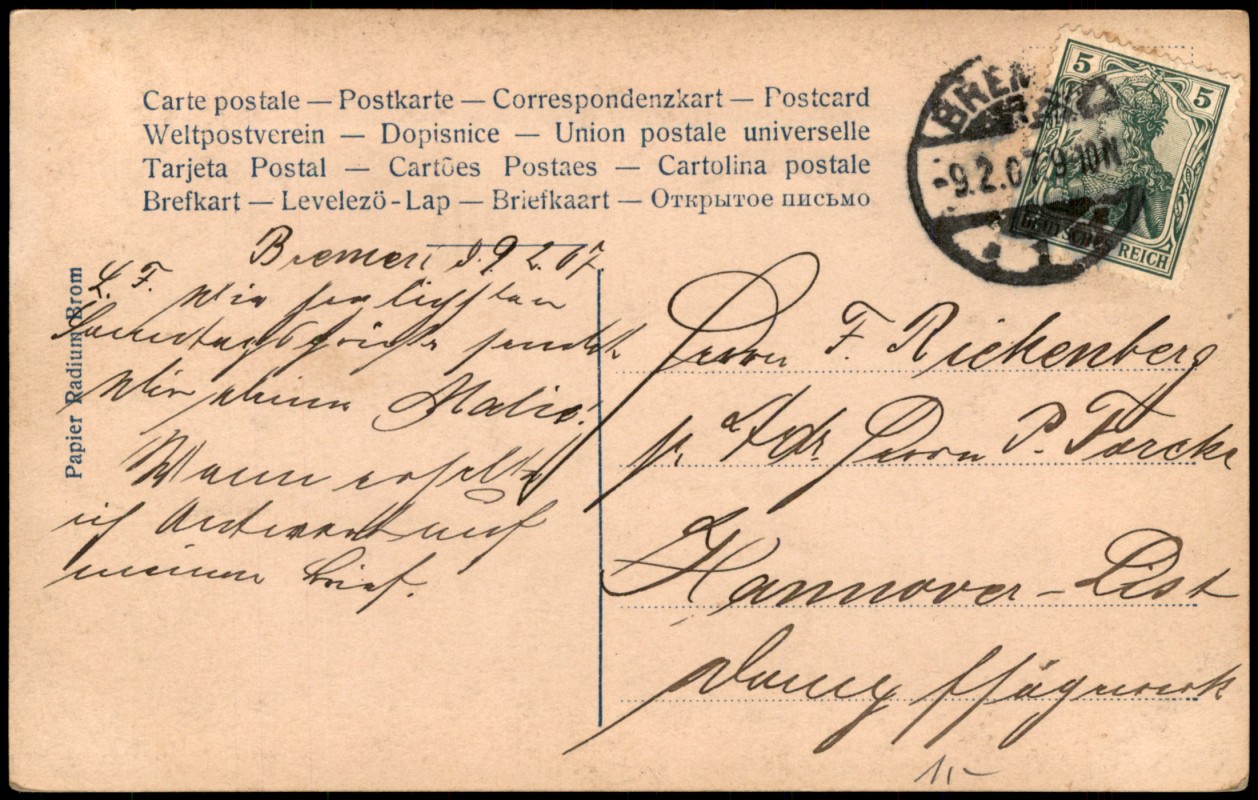 Carte postale — Postkarte — Correspondenzkart — Postcard
Weltpostverein — Dopisnice — Union postale universelle
Tarjeta Postal — Cartões Postaes — Cartolina postale
Brefkart — Levelező-Lap — Briefkaart — Открытое письмо
Papier Radium Brom
BREMEN
-9.2.07 9-10N
1
5 5
REICH
Bremen d. 9.2.07
L. F. Die herzlichsten
Sonntagsgrüße sendet
Dir
Wann erhalte
ich Antwort auf
meinen Brief.
Herrn F. Rickenberg
p. Adr Herrn P. Torcke
Hannover-List